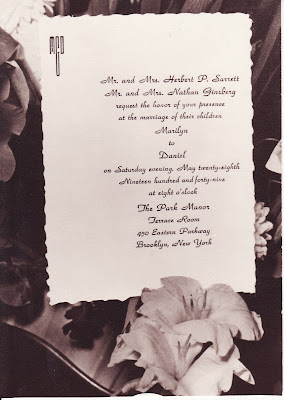 Mr. and Mrs. Herbert P. Sarrett
Mr. and Mrs. Nathan Ginsberg
request the honor of your presence
at the marriage of their children
Marilyn
to
Daniel
on Saturday evening, May twenty-eighth
Nineteen hundred and forty-nine
at eight o'clock
The Park Manor
Terrace Room
450 Eastern Parkway
Brooklyn, New York